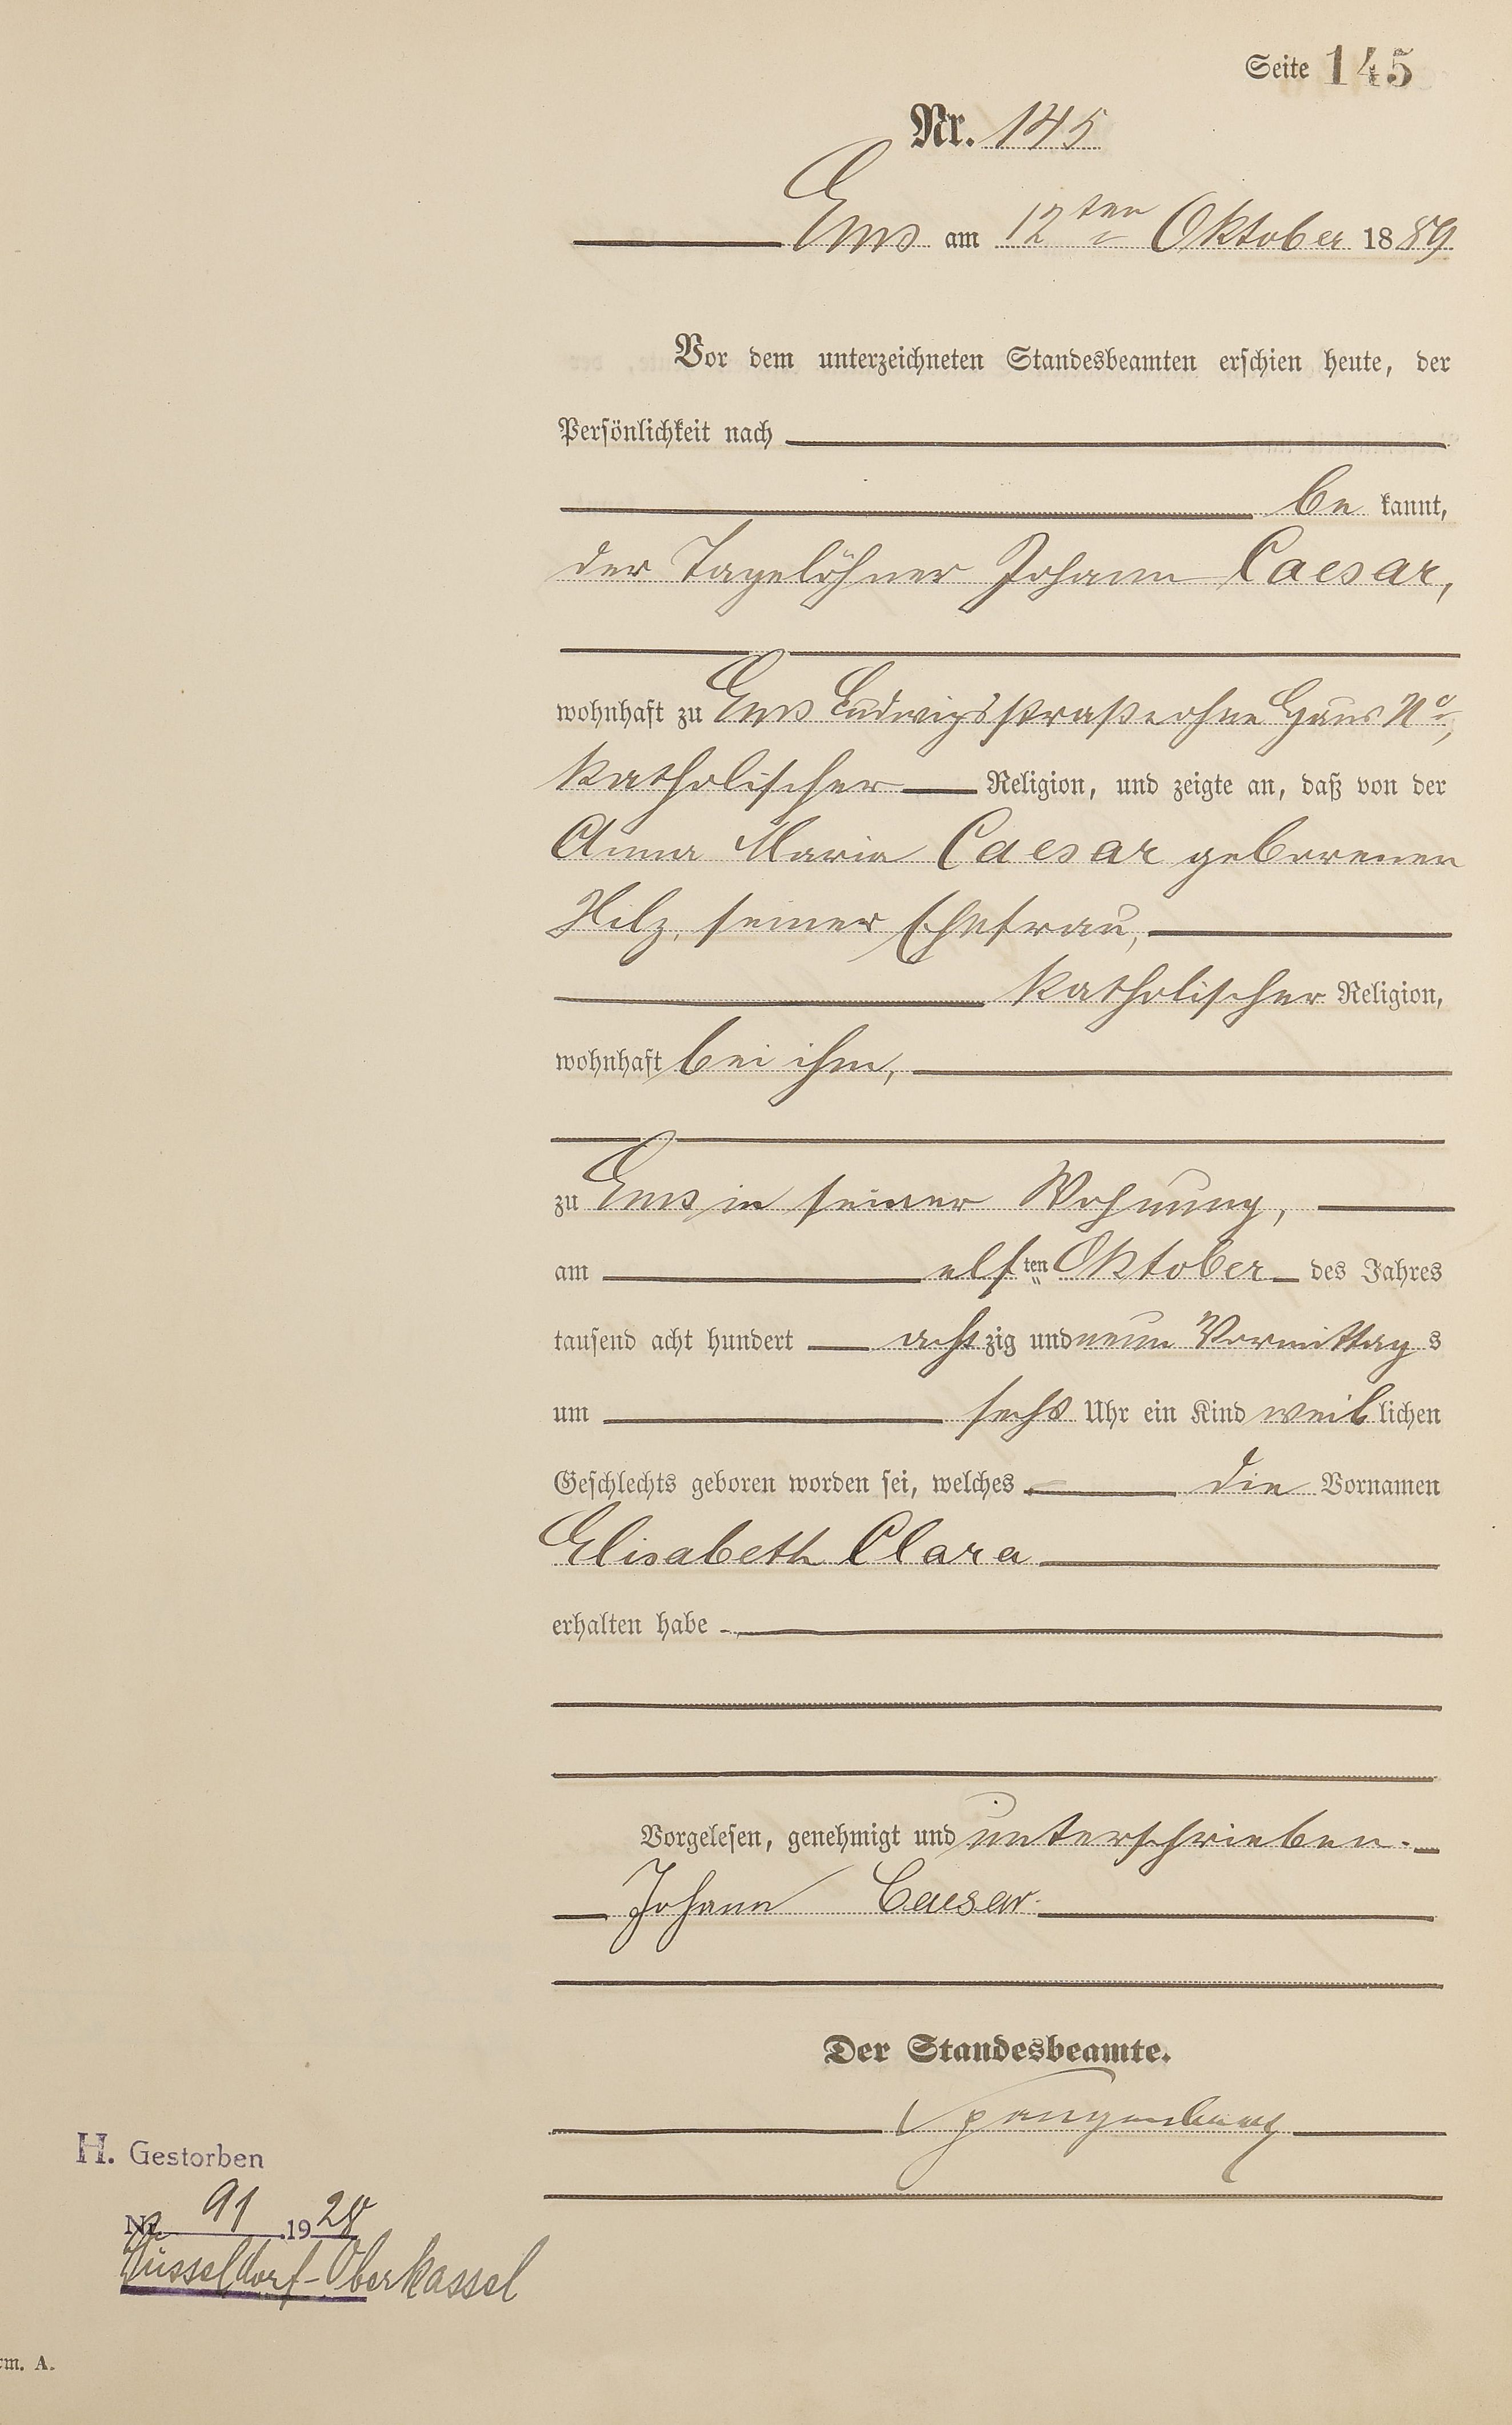 Seite 145
Nr. 145
Ems am 12ten Oktober 1889
Vor dem unterzeichneten Standesbeamten erschien heute, der
Persönlichkeit nach
be kannt,
der Tagelöhner Johann Caesar,
wohnhaft zu Ems Ludwigsstraße ohne Haus No,
katholischer Religion, und zeigte an, daß von der
Anna Maria Caesar geborenen
Hilz, seiner Ehefrau,
katholischer Religion,
wohnhaft bei ihm,
zu Ems in seiner Wohnung,
am elften Oktober des Jahres
tausend acht hundert achtzig und neun Vormittags
um sechs Uhr ein Kind weiblichen
Geschlechts geboren worden sei, welches die Vornamen
Elisabeth Clara
erhalten habe
Vorgelesen, genehmigt und unterschrieben.
Johann Caesar.
Der Standesbeamte.
Spangenberg
H. Gestorben
Nr. 91 1928
Düsseldorf-Oberkassel
rm. A.